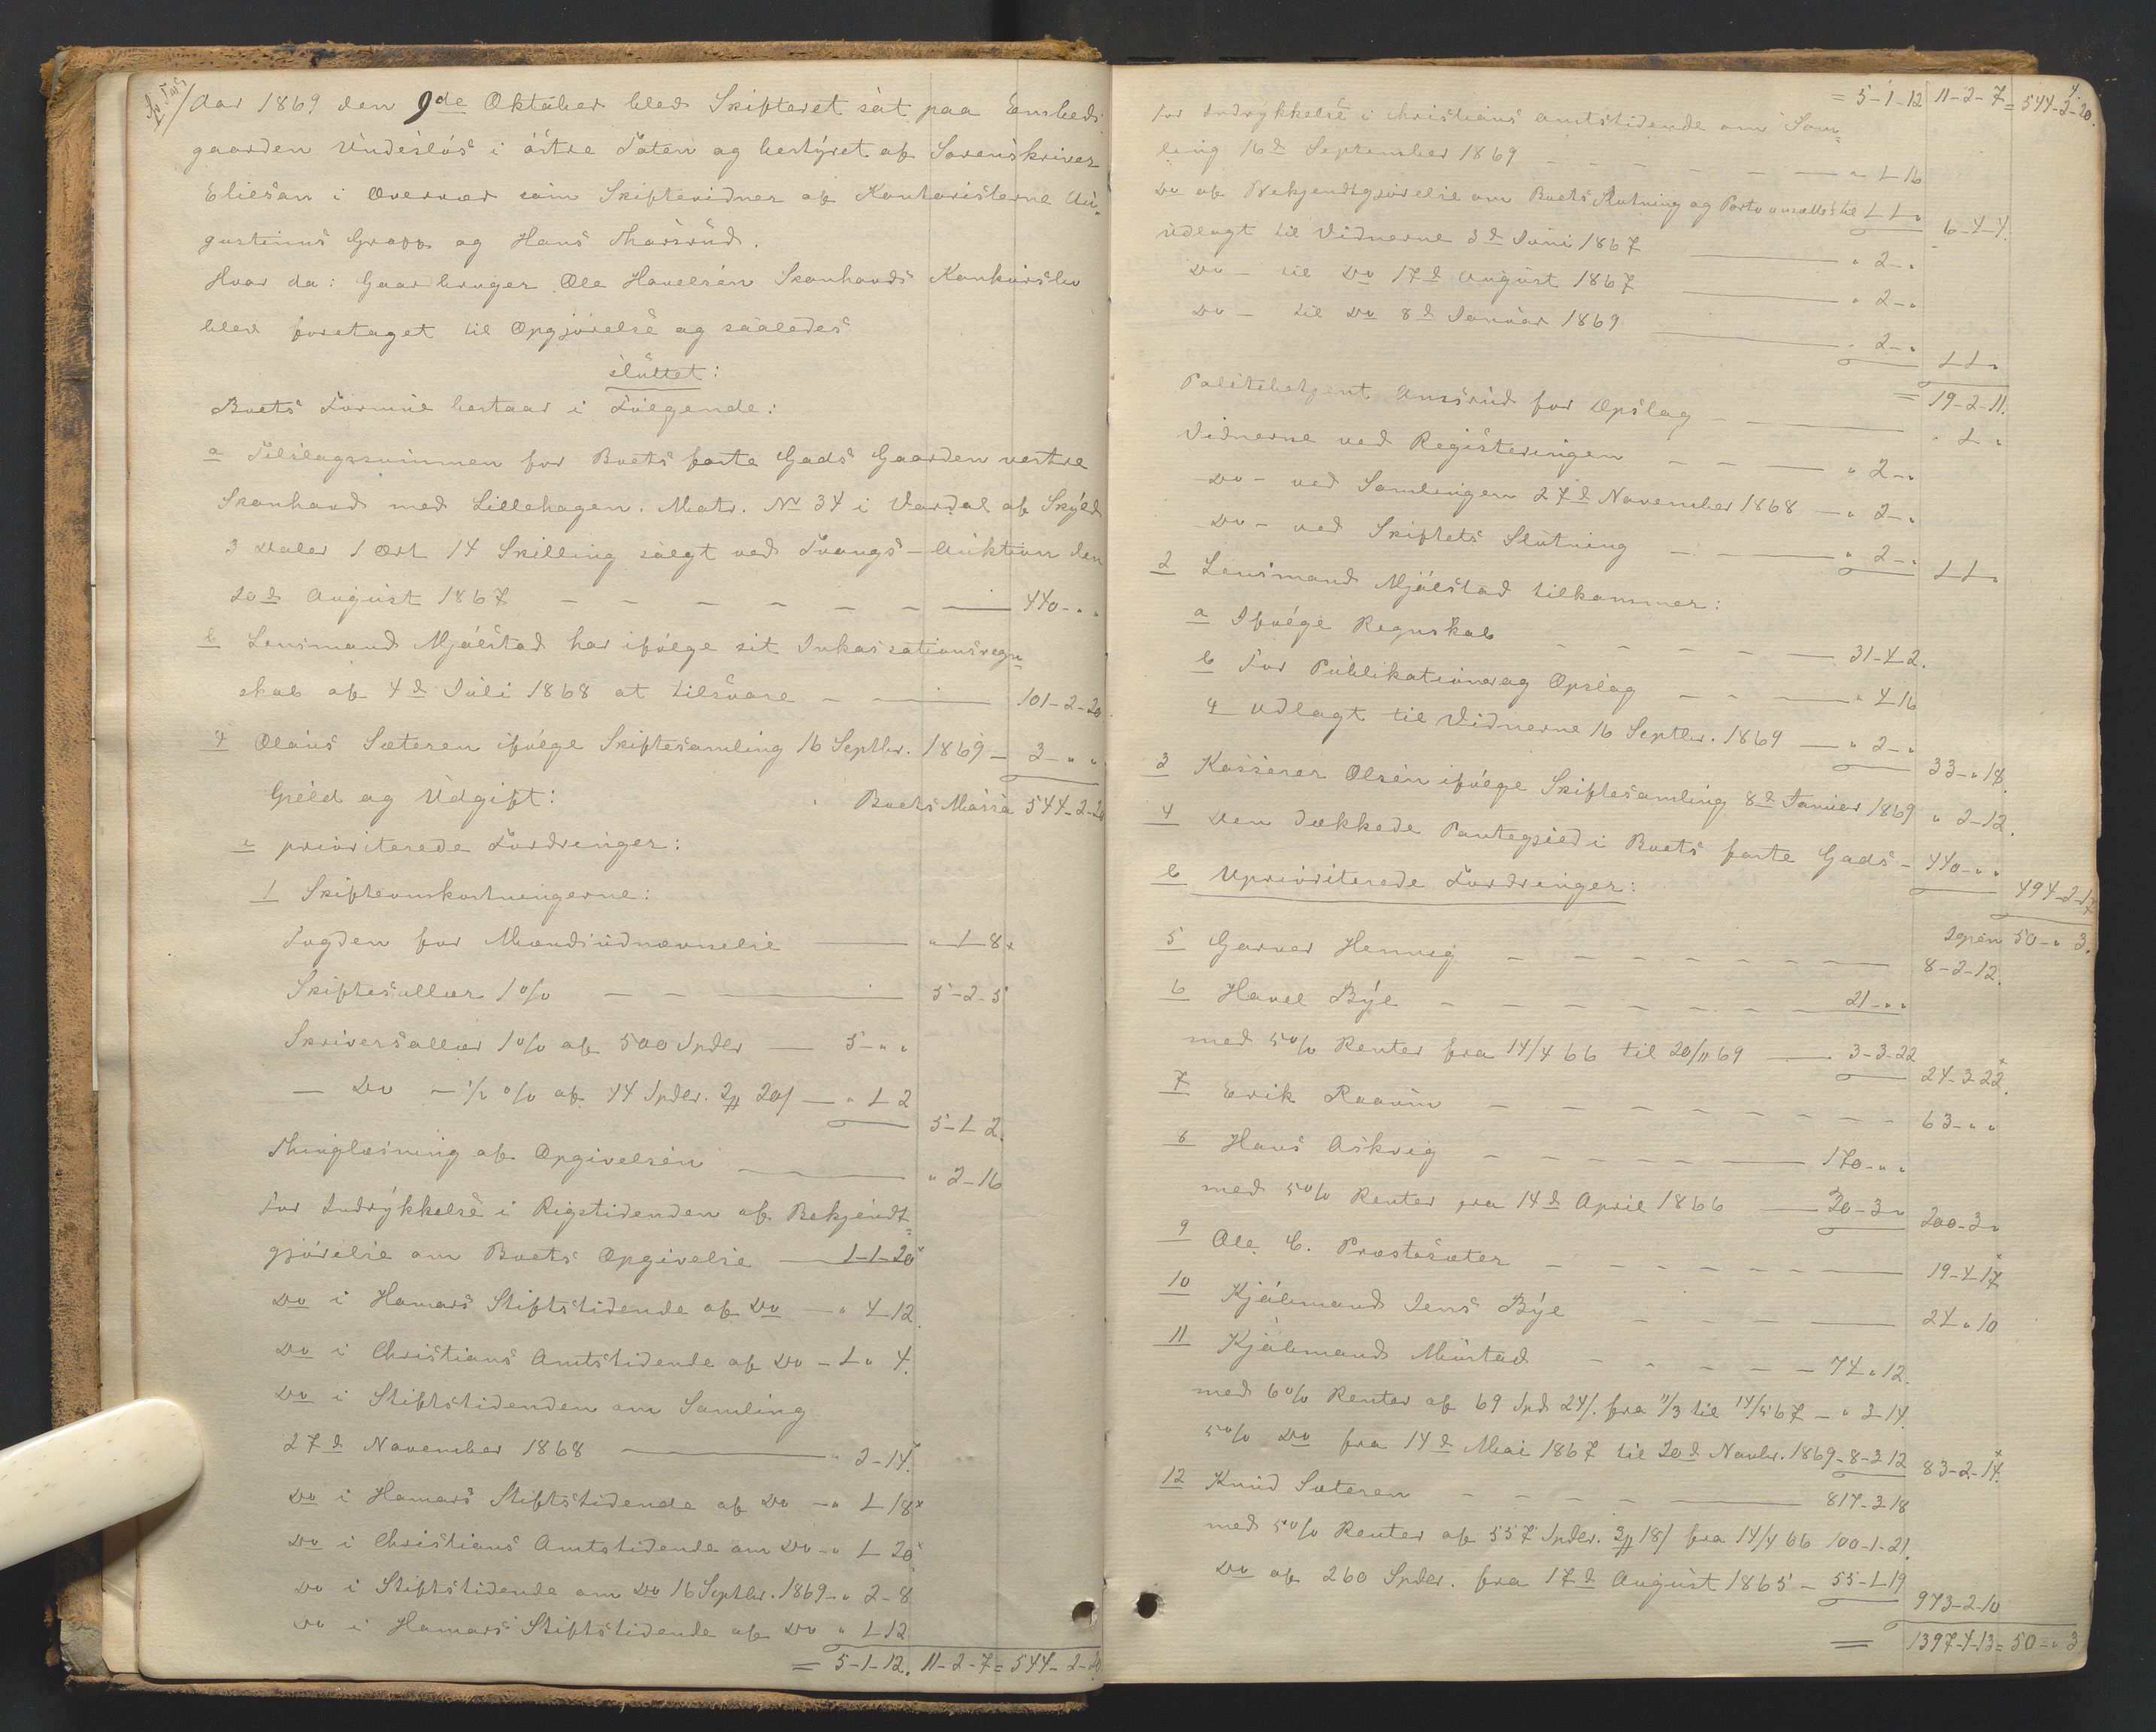 Aar 1869 den 9de Oktober blev Skifteret sat paa Embeds-
gaarden Undeslós i óstre Toten og bestyret af Sorenskriver
Eliesön i Overvær som Skiftevidner af Kontoristerne Au-
gustinus Grøpp og Hans Thorsrud.
Hvor da: Gaardbruger Ole Havelsen Skonhovds Konkursbo
blev foretaget til Opgjörelse og saaledes
sluttet:
Boets Formue bestaar i Fólgende:
a Tilslagssummen for Boets faste Gods Gaarden vestre
Skonhovd med Lillehagen. Matr. No 34 i Vardal af Skyld
3 Daler 1 Ort 14 Skilling solgt ved Tvangs-Auktion den
20d August 1867 - - - - - - 440 - " "
b Lensmand Mjólstad har ifólge sit Inkassationsregn-
skab af 4d Juli 1868 at tilsvare - - 101-2-20
c Olaus Sæteren ifólge Skiftesamling 16 Septbr. 1869 - 3 - " "
Gjeld og Udgift: Boets Massa 544-2-20
a prioriterede Fordringer:
1 Skifteomkostningerne:
Fogden for Mændsudnævnelse " 1 8
Skiftesallær 1% - - 5-2-5
Skriversallær 1% af 500 Spdlr 5 - " "
- Do - ½% af 44 Spdlr. 2# 20/ - " 1 2
5-1-2.
Thinglæsning af Opgivelsen " 2-16
For Indrykkelse i Rigstidenden af Bekjendt-
gjörelse om Boets Opgivelse 1-1-20
Do i Hamars Stiftstidende af Do - " 4-12.
Do i Christians Amtstidende af Do - 1 " 4.
Do i Stiftstidenden om Samling
27d November 1868 " 2-14.
Do i Hamars Stiftstidende af Do - " 1 18
Do i Christians Amtstidende om Do - " 1 20
Do i Stiftstidende om Do 16 Septbr. 1869 - " 2-8
Do i Hamars Stiftstidende af Do " 1 12
= 5-1-12. 11-2-7 = 544-2-20
= 5-1-12 11-2-7 = 544-2-20.
For Indrykkelse i Christians Amtstidende om Sam-
ling 16d September 1869 - - - " 1 16
Do af Bekjendtgjörelse om Boets Slutning og Porto ansættes til 1 1 "
6-4-4.
Udlagt til Vidnerne 3d Juni 1867 " 2 - "
Do - til Do 17d August 1867 " 2 - "
Do - til Do 8d Januar 1869 " 2 - "
1 1 "
= 19-2-11.
Politibetjent Amsrud for Opslag - " 1 "
Vidnerne ved Registeringen - - " 2 - "
Do - ved Samlingen 27d November 1868 - " 2 - "
Do - ved Skiftets Slutning - " 2 - "
1 1 "
2 Lensmand Mjólstad tilkommer:
a Ifólge Regnskab - - - - 31-4-2.
b For Publikationer og Opslag - - " 4 16
c Udlagt til Vidnerne 16 Septbr. 1869 - " 2 - "
33 - " 18.
3 Kasserer Olsen ifólge Skiftesamling 8d Januar 1869 " 2-12.
4 Den dækkede Pantegjeld i Boets faste Gods - 440 - " "
494-2-17
b Uprioriterede Fordringer:
Igjen 50 - " 3.
5 Garver Hennig - - - - - - 8-2-12.
6 Havel Bye - - - - - 21 - " "
med 5% Renter fra 14/4 66 til 20/11 69 3-3-22
24-3-22.
7 Erik Raaum - - - - - - - 63 - " "
8 Hans Askvig - - - - 170 - " "
med 5% Renter fra 14d April 1866 30-3 "
200-3 "
9 Ole C. Prestesæter - - - - 19-4-17
10 Kjóbmand Jens Bye - - - 24 " 10
11 Kjóbmand Mustad - - - - 74 " 12.
med 6% Renter af 69 Spd 24/. fra 11/3 til 14/5 67 - " 3 14.
5% Do fra 14d Mai 1867 til 20d Novbr. 1869 - 8-3 12
83-2-14.
12 Knud Sæteren - - - - 817-3-18
med 5% Renter af 557 Spdlr. 3# 18/ fra 14/4 66 100-1-21.
Do af 260 Spdlr. fra 17d August 1865 - 55-1 19
973-2-10
= 1397-4-13 = 50 - " 3